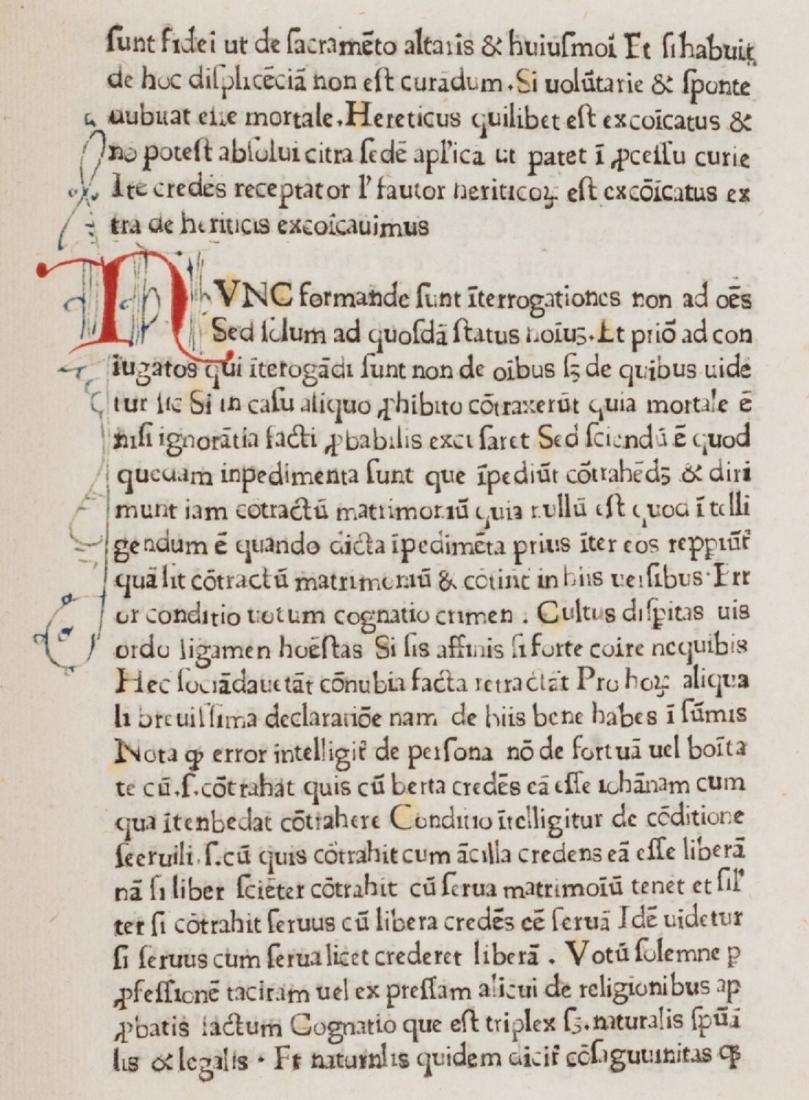 sunt fidei ut de sacramēto altaris & huiusmoi Et si habuit
de hoc displicēciā non est curadum. Si uolūtarie & sponte
mortale. Hereticus quilibet est excoīcatus &
nō potest absolui citra sedē apl'ica ut patet ī ꝓcessu curie
Itē credēs receptator l' fautor heriticoꝝ est excōīcatus ex
tra de heriticis excoīcauimus
NVNC formande sunt īterrogationes non ad oēs
Sed solum ad quosdā status hoīuꝫ. Et priō ad con
iugatos qui īterogādi sunt non de oībus sꝫ de quibus uide
tur ītē Si in casu aliquo ꝓhibito cōtraxerūt quia mortale ē
nisi ignorātia facti ꝓbabilis excusaret Sed sciendū ē quod
quedam inpedimenta sunt que īpediūt cōtrahēdꝫ & diri
munt iam cotractū matrimoniū quia nullū est quod ītelli
gendum ē quando dicta īpedimēta prius īter eos reppiūt̄
quā sit cōtractū matrimoniū & cōtinē in hiis uersibus. Err
or conditio uotum cognatio crimen. Cultus dispitas uis
ordo ligamen hoēstas Si sis affinis si forte coire nequibis
Hec sociāda uetāt cōnubia facta retractāt Pro hoꝝ aliqua
li breuissima declaratiōe nam de hiis bene habes ī sūmis
Nota ꝙ error intelligit̄ de persona nō de fortuā uel boīta
te cū. s. cōtrahat quis cū berta credēs eā esse iohānam cum
qua ītenbedat cōtrahere Conditio ītelligitur de cōditione
seeruili. s. cū quis cōtrahit cum ācilla credens eā esse liberā
nā si liber sciēter cōtrahit cū serua matrimoīū tenet et sil'
ter si cōtrahit seruus cū libera credēs eē seruā Idē uidetur
si seruus cum serua licet crederet liberā. Votū solemne p
ꝓfessionē tacitam uel expressam alicui de religionibus ap
ꝓbatis factum Cognatio que est triplex sꝫ. naturalis spūā
lis & legalis. Et naturalis quidem dicit̄ cōsāguuinitas ꝙ